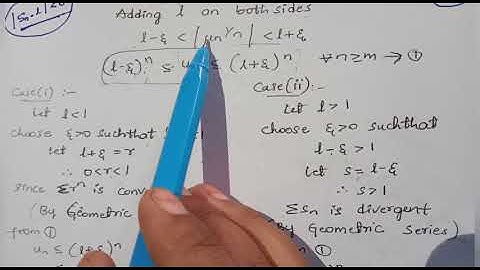 |Sn-l|<ε
Adding l on both sides
l-ε < |un^1/n| < l+ε
(l-ε)^n ≤ un ≤ (l+ε)^n ∀ n≥m → ①
Case(i) :-
Let l<1
choose ε>0 such that
let l+ε = r
∴ 0<r<1
since Σr^n is
(By Geometric
from ①
un ≤ (l+ε)^n
Case(ii) :-
Let l>1
choose ε>0 such that
l-ε > 1
let s = l-ε
∴ s>1
Σsn is divergent
(By Geometric series)
From ①